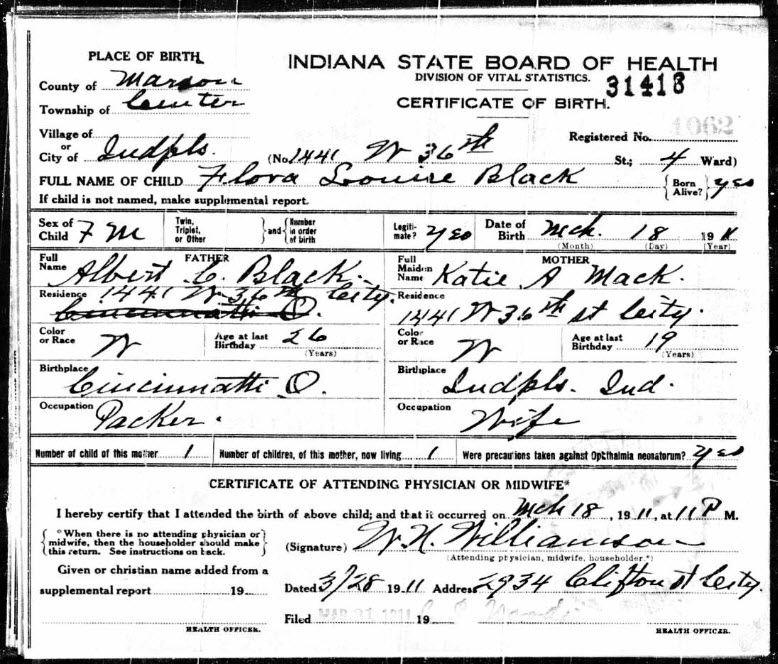 PLACE OF BIRTH
INDIANA STATE BOARD OF HEALTH
DIVISION OF VITAL STATISTICS.
31418
CERTIFICATE OF BIRTH.
County of Marion
Township of Center
Village of
or
City of Indpls.
(No. 1441 W 36th St.; 4 Ward)
Registered No. 1062
FULL NAME OF CHILD Flora Louise Black { Born Alive? } yes
If child is not named, make supplemental report.
Sex of Child F M
Twin, Triplet, or Other } and { Number in order of birth
Legitimate? yes
Date of Birth Mch. 18 1911
(Month) (Day) (Year)
FATHER
Full Name Albert C. Black.
Residence 1441 W 36th City
Cincinnatti O.
Color or Race W
Age at last Birthday 26
(Years)
Birthplace Cincinnatti O.
Occupation Packer.
MOTHER
Full Maiden Name Katie A Mack.
Residence 1441 W 36th st City.
Color or Race W
Age at last Birthday 19
(Years)
Birthplace Indpls. Ind.
Occupation Wife
Number of child of this mother 1
Number of children, of this mother, now living 1
Were precautions taken against Ophthalmia neonatorum? yes
CERTIFICATE OF ATTENDING PHYSICIAN OR MIDWIFE*
I hereby certify that I attended the birth of above child; and that it occurred on Mch 18, 1911, at 11 P M.
{ *When there is no attending physician or midwife, then the householder should make this return. See instructions on back. }
(Signature) W. H. Williamson
(Attending physician, midwife, householder.*)
Given or christian name added from a
supplemental report 19
Dated 3/28 1911 Address 2934 Clifton st City.
Filed MAR 31 1911 19
HEALTH OFFICER.
HEALTH OFFICER.